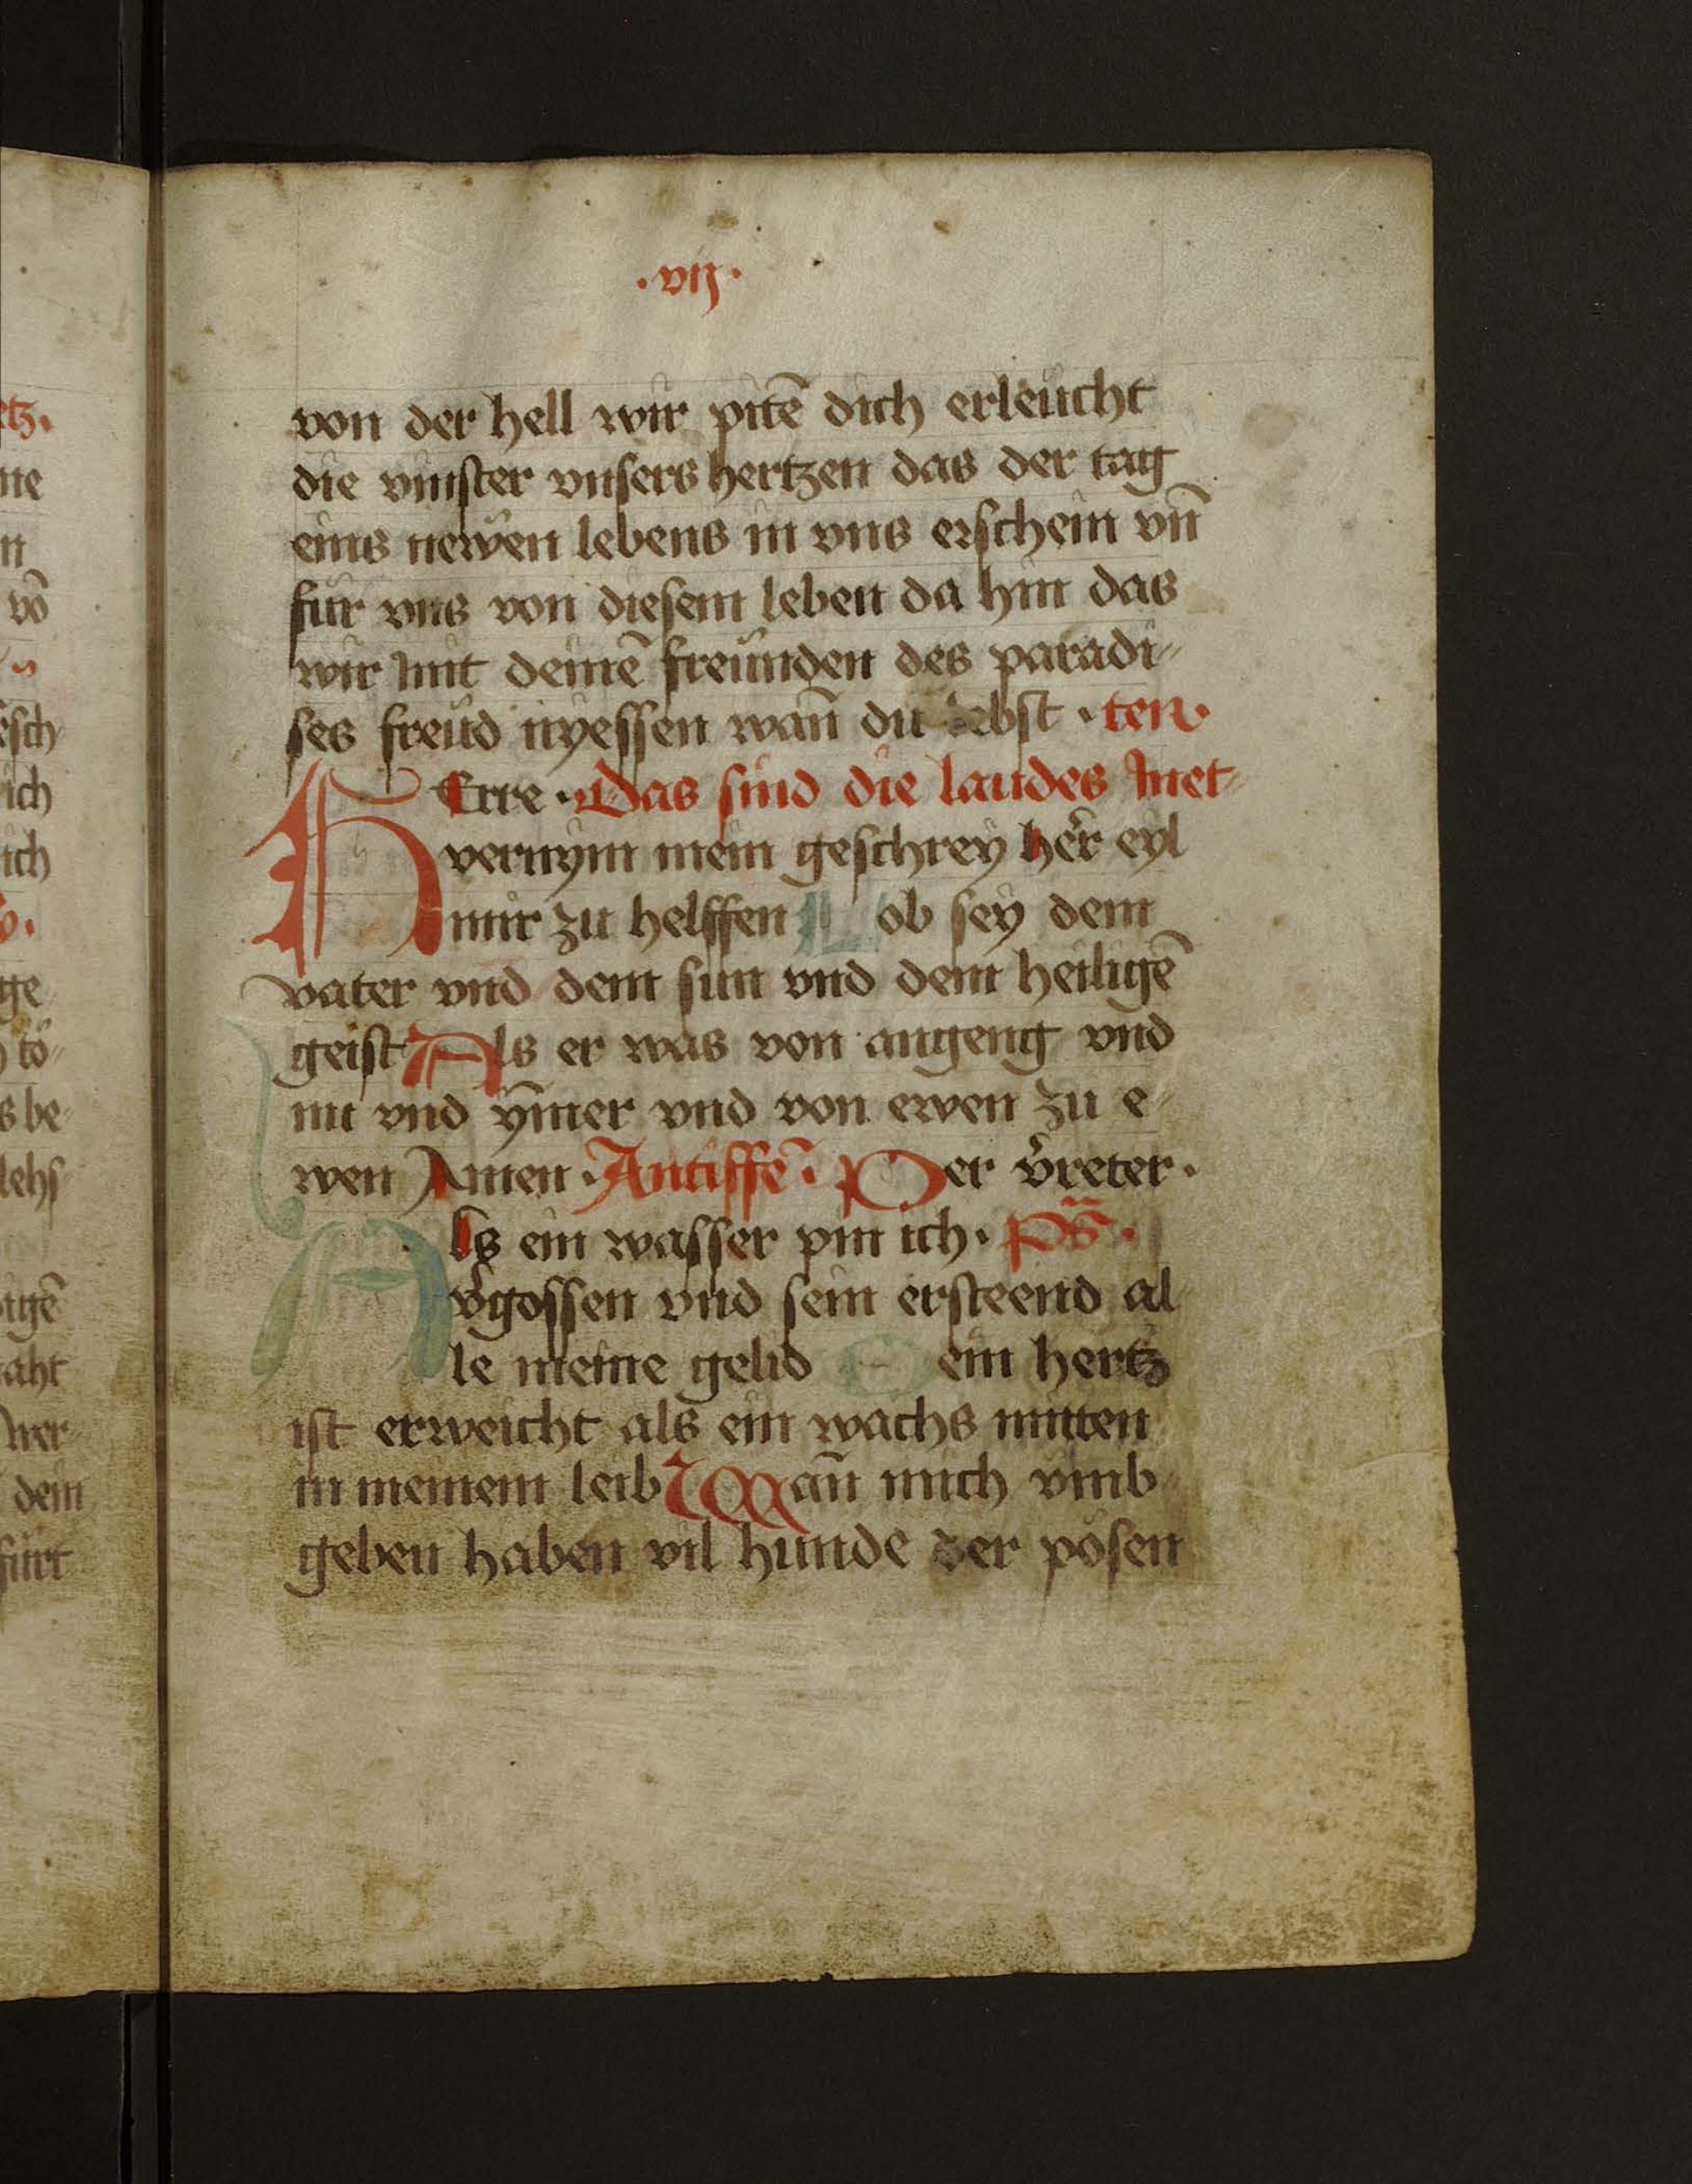 etz.
ne
n
vō
esch
ich
ich
ge
tö
s be
lehs
tigē
aht
wer
dem
fürt
.vij.
von der hell wir pitē dich erleücht
die vinster vnsers hertzen das der tag
eins newen lebens in vns erschein vn̄
für vns von diesem leben da hin das
wir mit deinē freünden des paradi⸗
ses freüd nyessen wan̄ du lebst . ten.
HErre . Das sind die laudes met⸗
vernym mein geschrey her eyl
mir zu helffen Lob sey dem
vater vnd dem sun vnd dem heiligē
geist Als er was von angeng vnd
nu vnd ym̄er vnd von ewen zu e⸗
wen Amen . Antiffē . Der v̓reter .
Als ein wasser pin ich . Ps̄ .
v̓gossen vnd sein ersteend al⸗
le meine gelid Mein hertz
ist erweicht als ein wachs mitten
in meinem leib Wan̄ mich vmb⸗
geben haben vil hunde der pösen